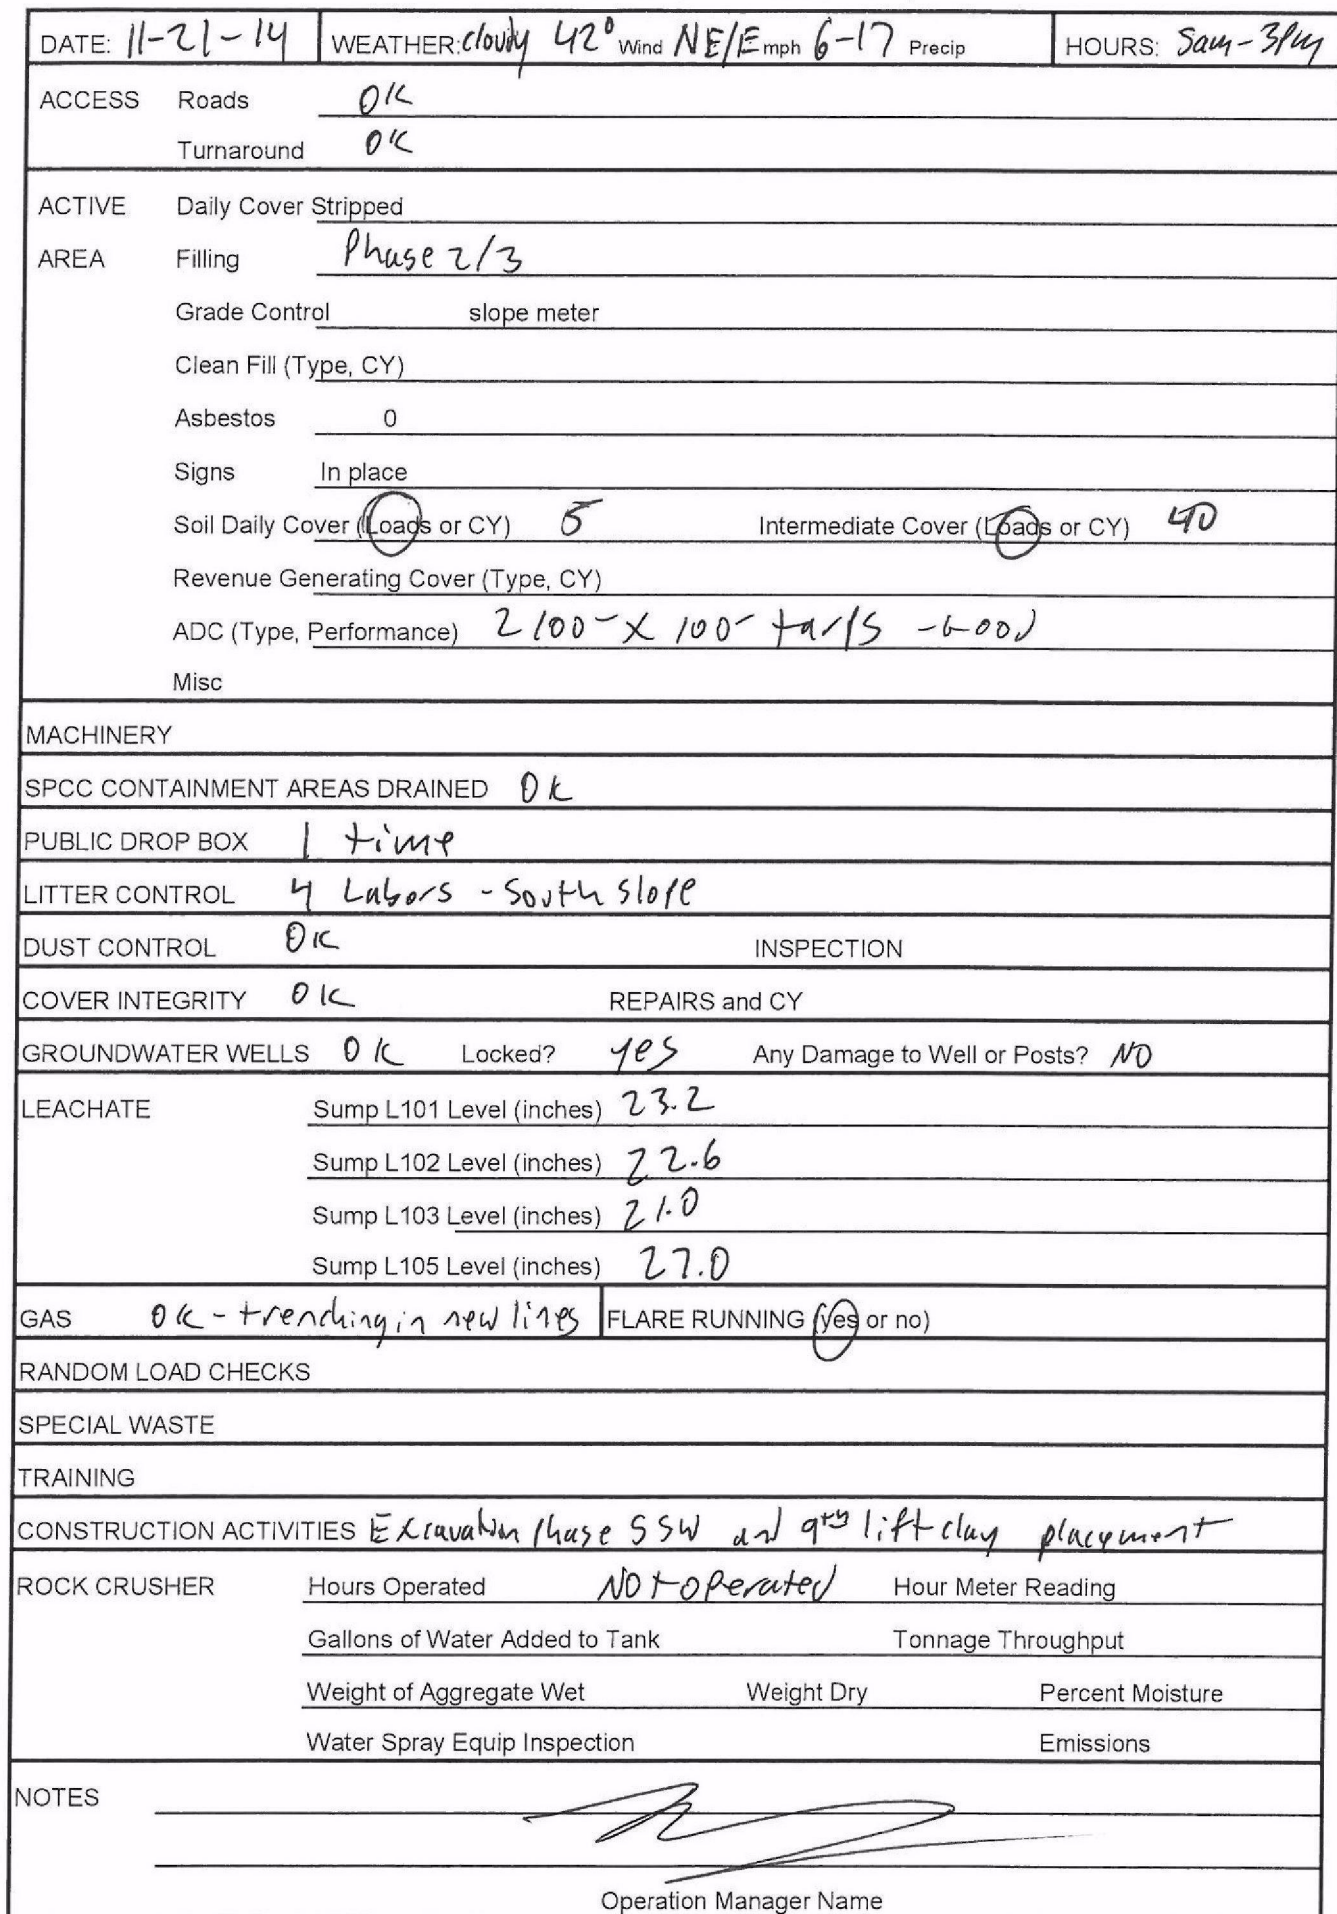 DATE: 11-21-14 WEATHER: cloudy 42° Wind NE/E mph 6-17 Precip HOURS: 5am-3pm
ACCESS Roads OK
Turnaround OK
ACTIVE Daily Cover Stripped
AREA Filling Phase 2/3
Grade Control slope meter
Clean Fill (Type, CY)
Asbestos 0
Signs In place
Soil Daily Cover (Loads or CY) 5 Intermediate Cover (Loads or CY) 40
Revenue Generating Cover (Type, CY)
ADC (Type, Performance) 2 100- X 100- tarps - Good
Misc
MACHINERY
SPCC CONTAINMENT AREAS DRAINED OK
PUBLIC DROP BOX 1 time
LITTER CONTROL 4 Labors - South slope
DUST CONTROL OK INSPECTION
COVER INTEGRITY OK REPAIRS and CY
GROUNDWATER WELLS OK Locked? yes Any Damage to Well or Posts? NO
LEACHATE Sump L101 Level (inches) 23.2
Sump L102 Level (inches) 22.6
Sump L103 Level (inches) 21.0
Sump L105 Level (inches) 27.0
GAS OK - trenching in new lines FLARE RUNNING (yes or no)
RANDOM LOAD CHECKS
SPECIAL WASTE
TRAINING
CONSTRUCTION ACTIVITIES Excavation Phase 5SW and lift clay placement
ROCK CRUSHER Hours Operated Not operated Hour Meter Reading
Gallons of Water Added to Tank Tonnage Throughput
Weight of Aggregate Wet Weight Dry Percent Moisture
Water Spray Equip Inspection Emissions
NOTES
Operation Manager Name